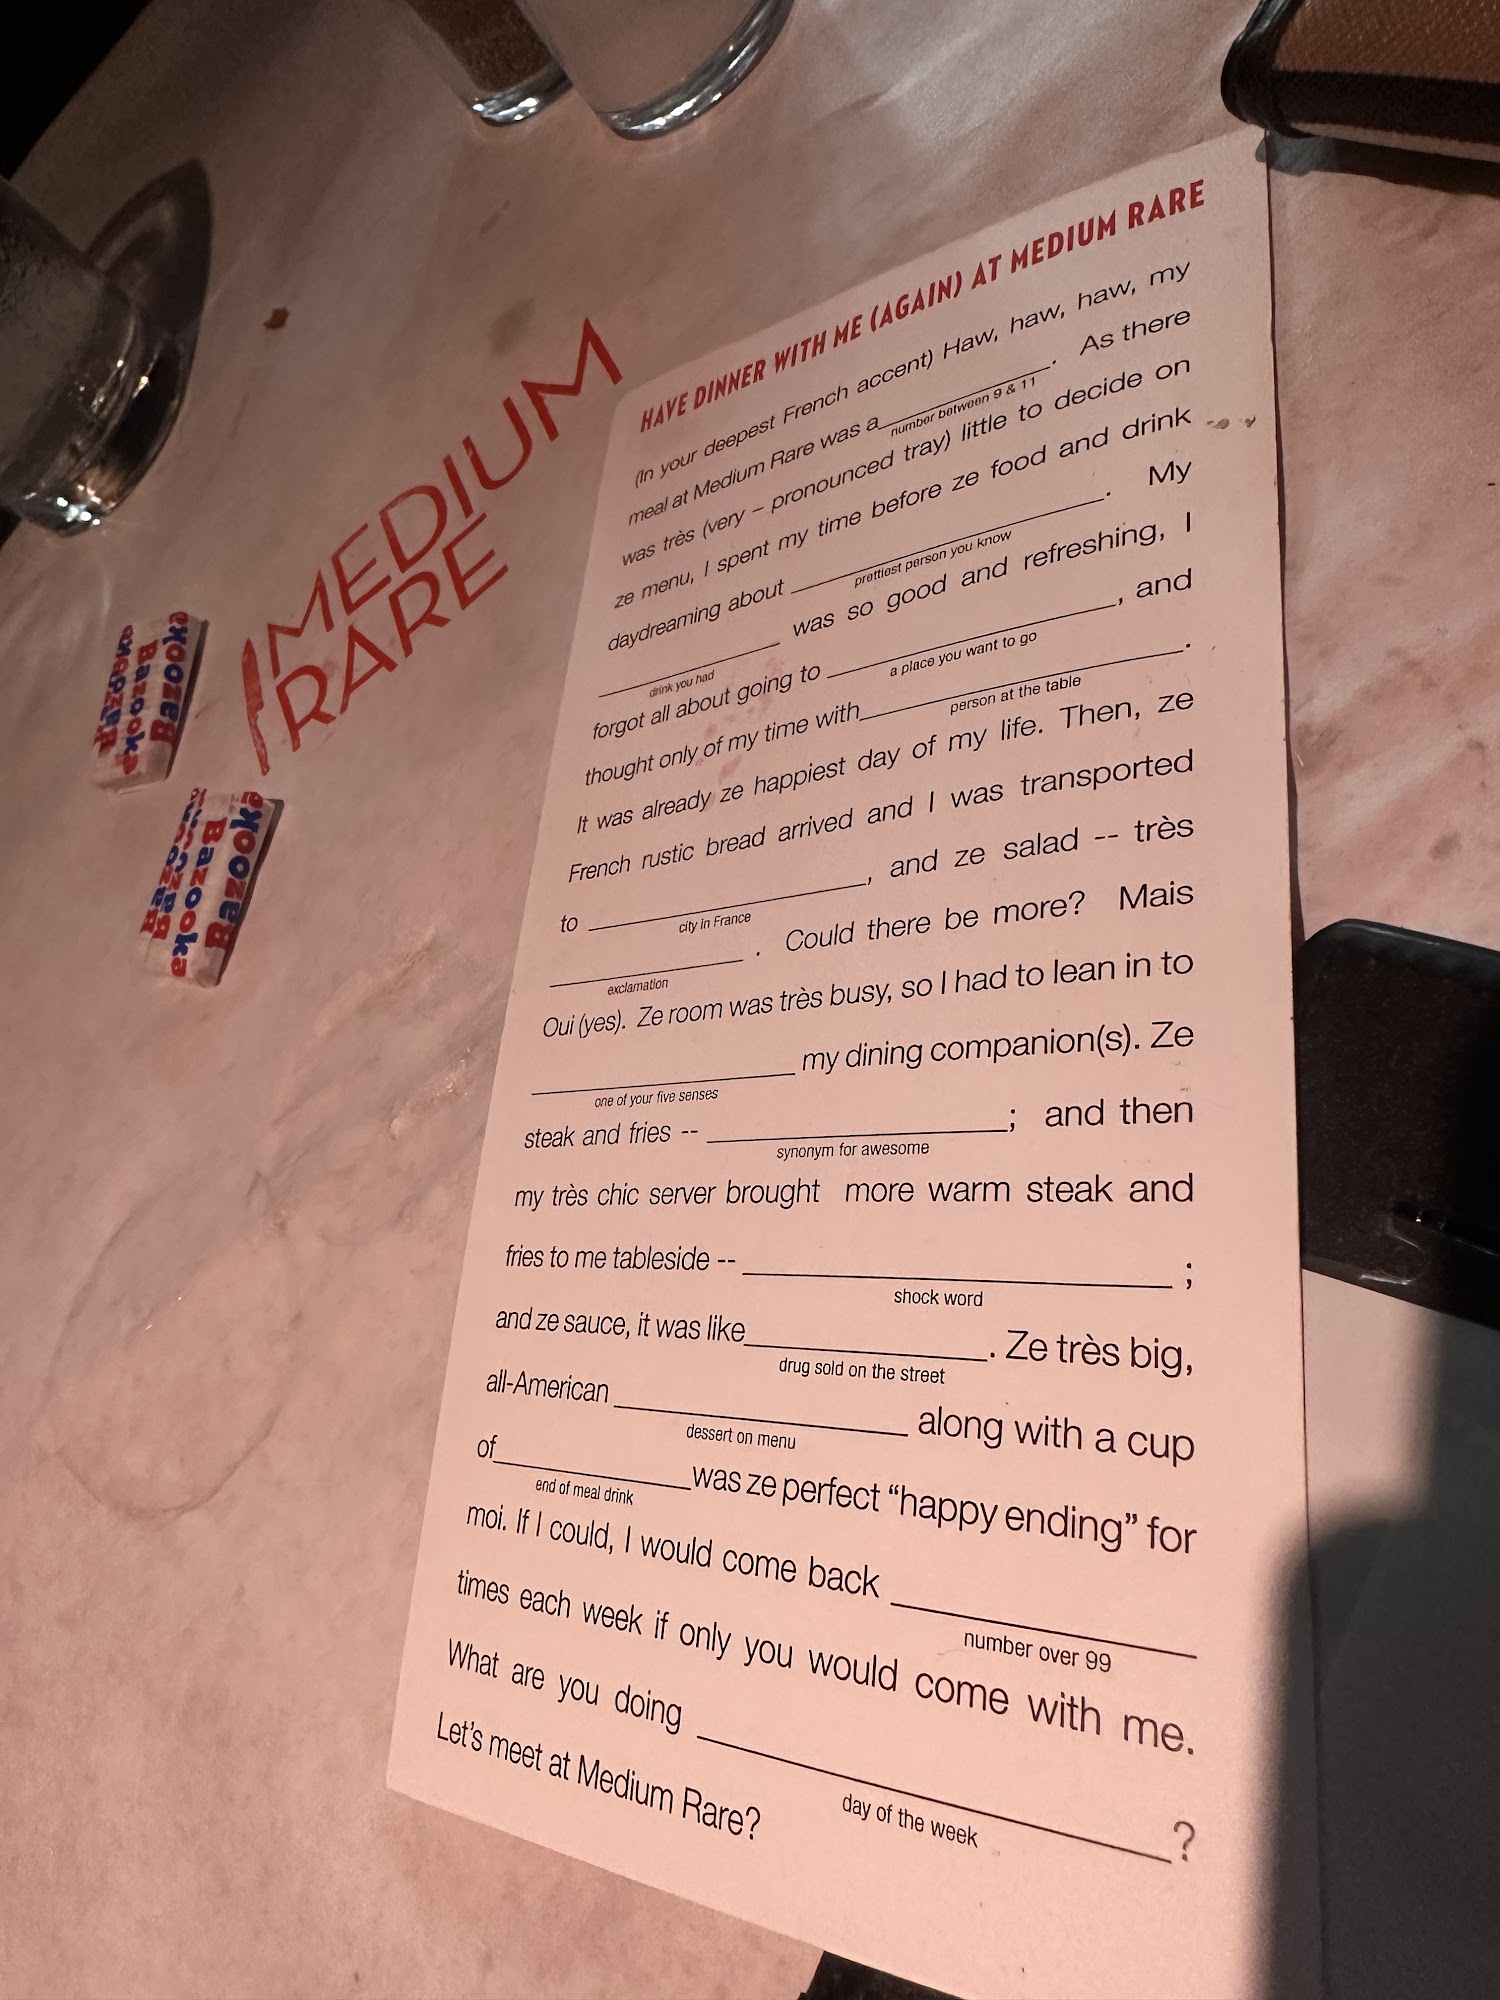 HAVE DINNER WITH ME (AGAIN) AT MEDIUM RARE
(In your deepest French accent) Haw, haw, haw, my
meal at Medium Rare was a ________. As there
number between 9 & 11
was très (very – pronounced tray) little to decide on
ze menu, I spent my time before ze food and drink
daydreaming about ________. My
prettiest person you know
________ was so good and refreshing, I
drink you had
forgot all about going to ________, and
a place you want to go
thought only of my time with ________.
person at the table
It was already ze happiest day of my life. Then, ze
French rustic bread arrived and I was transported
to ________, and ze salad -- très
city in France
________. Could there be more? Mais
exclamation
Oui (yes). Ze room was très busy, so I had to lean in to
________ my dining companion(s). Ze
one of your five senses
steak and fries -- ________; and then
synonym for awesome
my très chic server brought more warm steak and
fries to me tableside -- ________;
shock word
and ze sauce, it was like ________. Ze très big,
drug sold on the street
all-American ________ along with a cup
dessert on menu
of ________ was ze perfect “happy ending” for
end of meal drink
moi. If I could, I would come back ________
number over 99
times each week if only you would come with me.
What are you doing ________?
day of the week
Let’s meet at Medium Rare?
MEDIUM
RARE
Bazooka
Bazooka
Bazooka
Bazooka